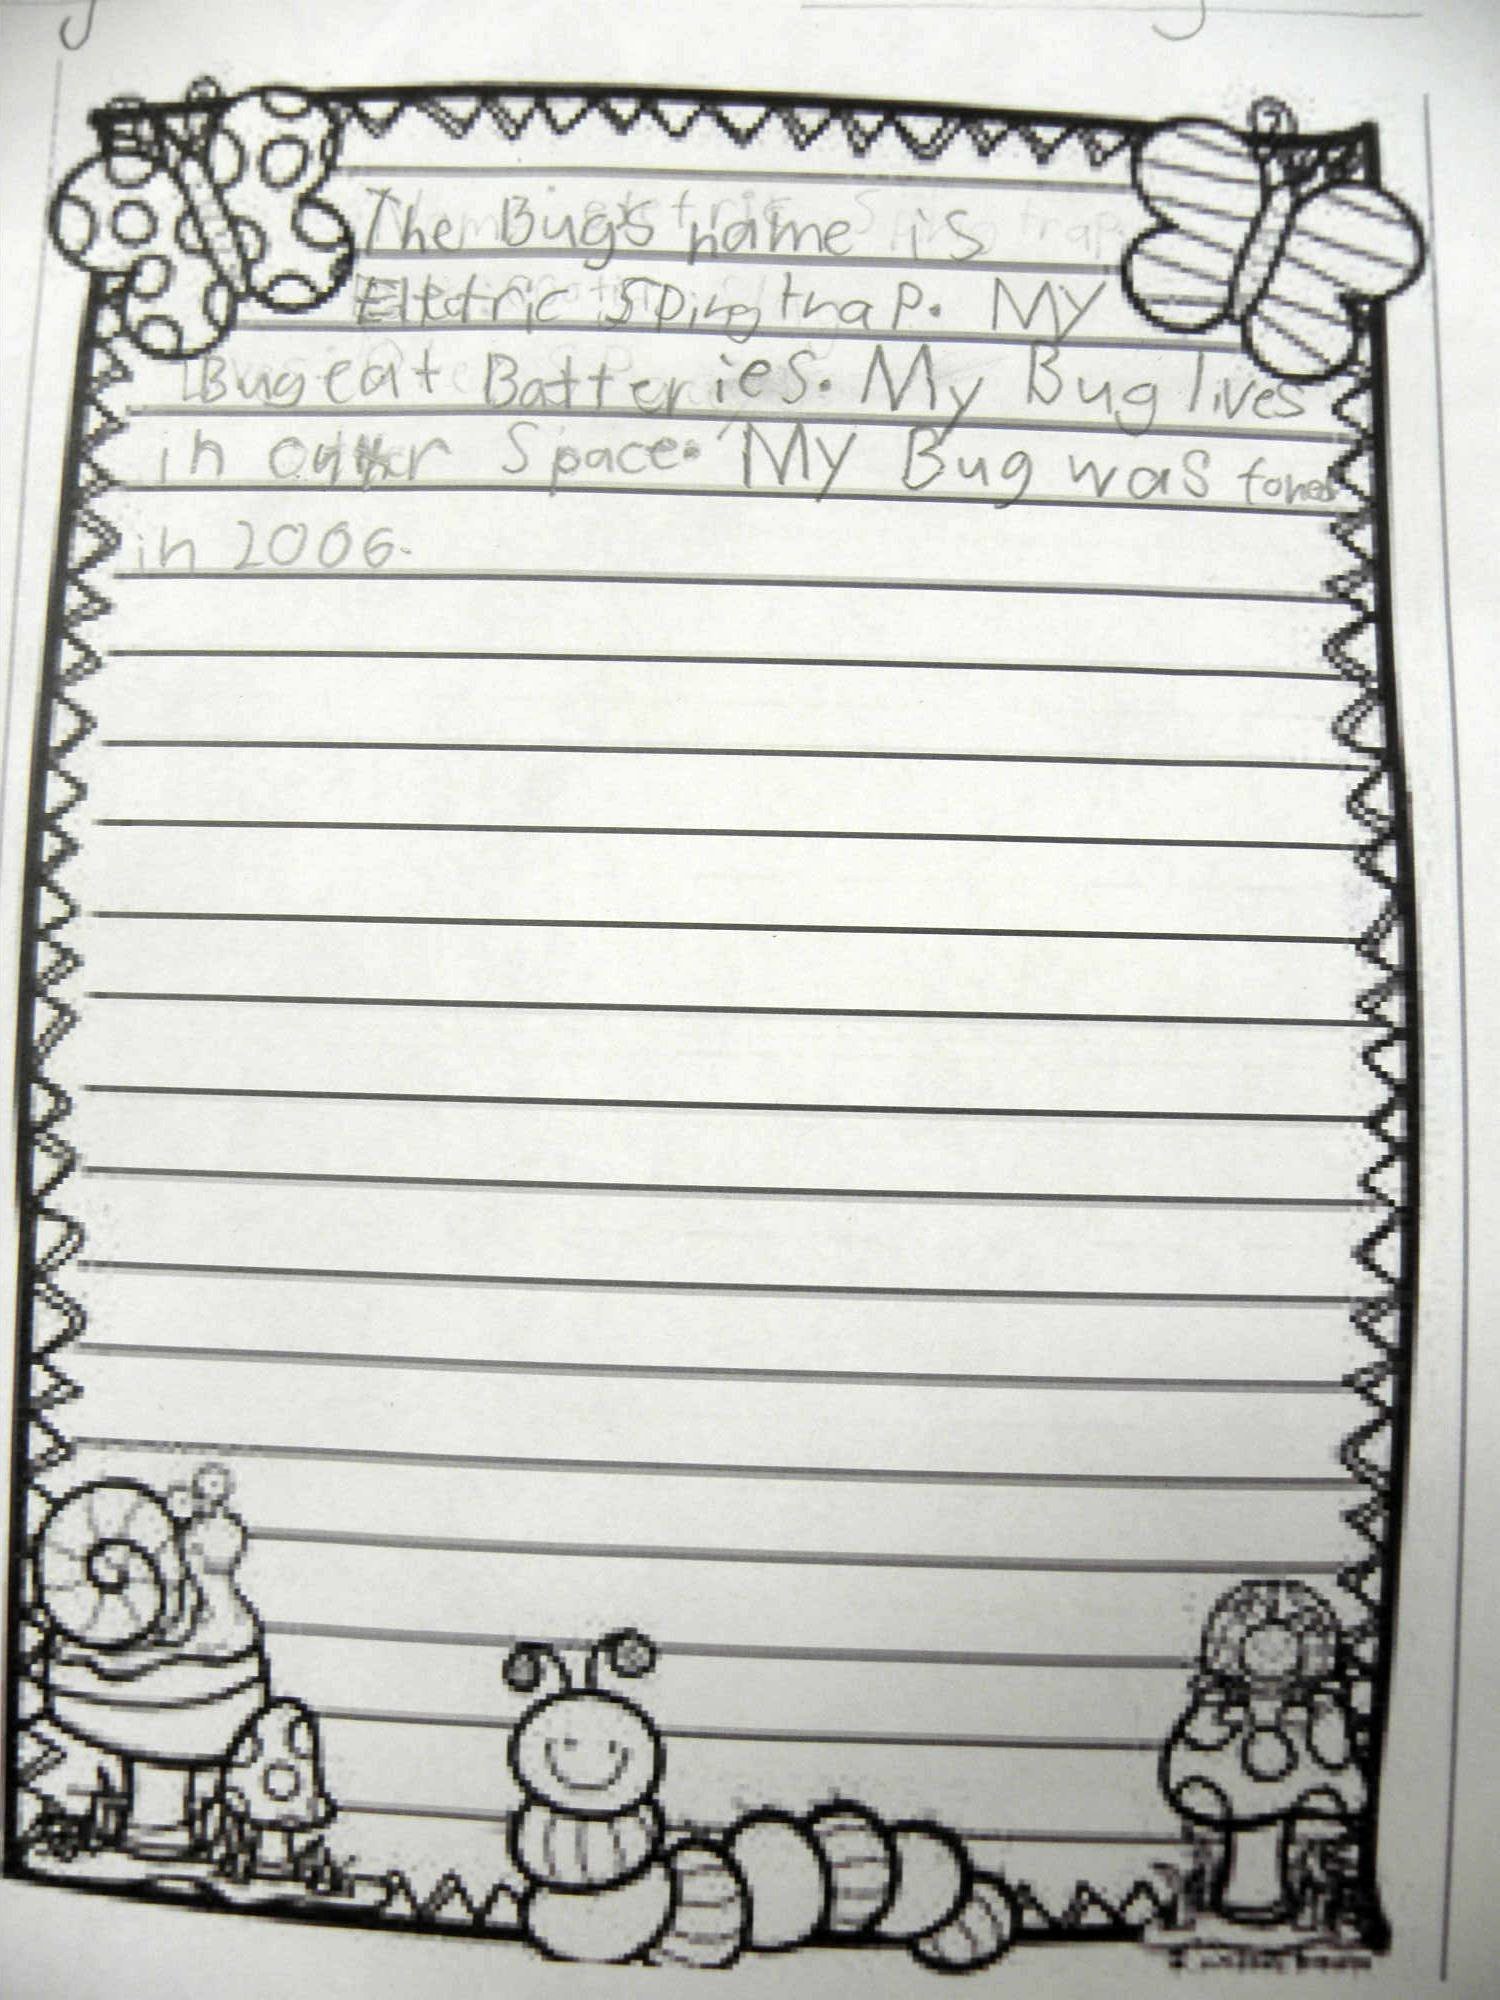 The Bug's name is
Elctric Spingtrap. My
Bug eat Batteries. My Bug lives
in outer Space. My Bug was foned
in 2006.